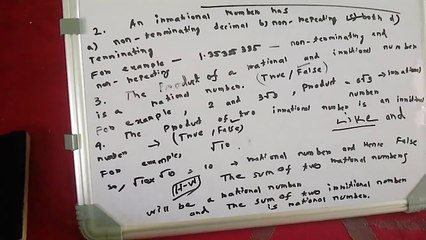 2. An irrational number has
a) non-terminating decimal b) non-repeating c) both d)
Terminating
For example - 1.35335 335 - non-terminating and
non-repeating
3. The Product of a rational and irrational number
is a rational number. (True/False)
For example, 2 and 3√3, Product = 6√3 → irrational
number
4. The Product of two irrational number is an irrational
number → (True/False) Like and
For example √10.
so, √10 x √10 = 10 → rational number and Hence False
H-W The sum of two rational numbers
will be a rational number
and The sum of two irrational number
is rational number.